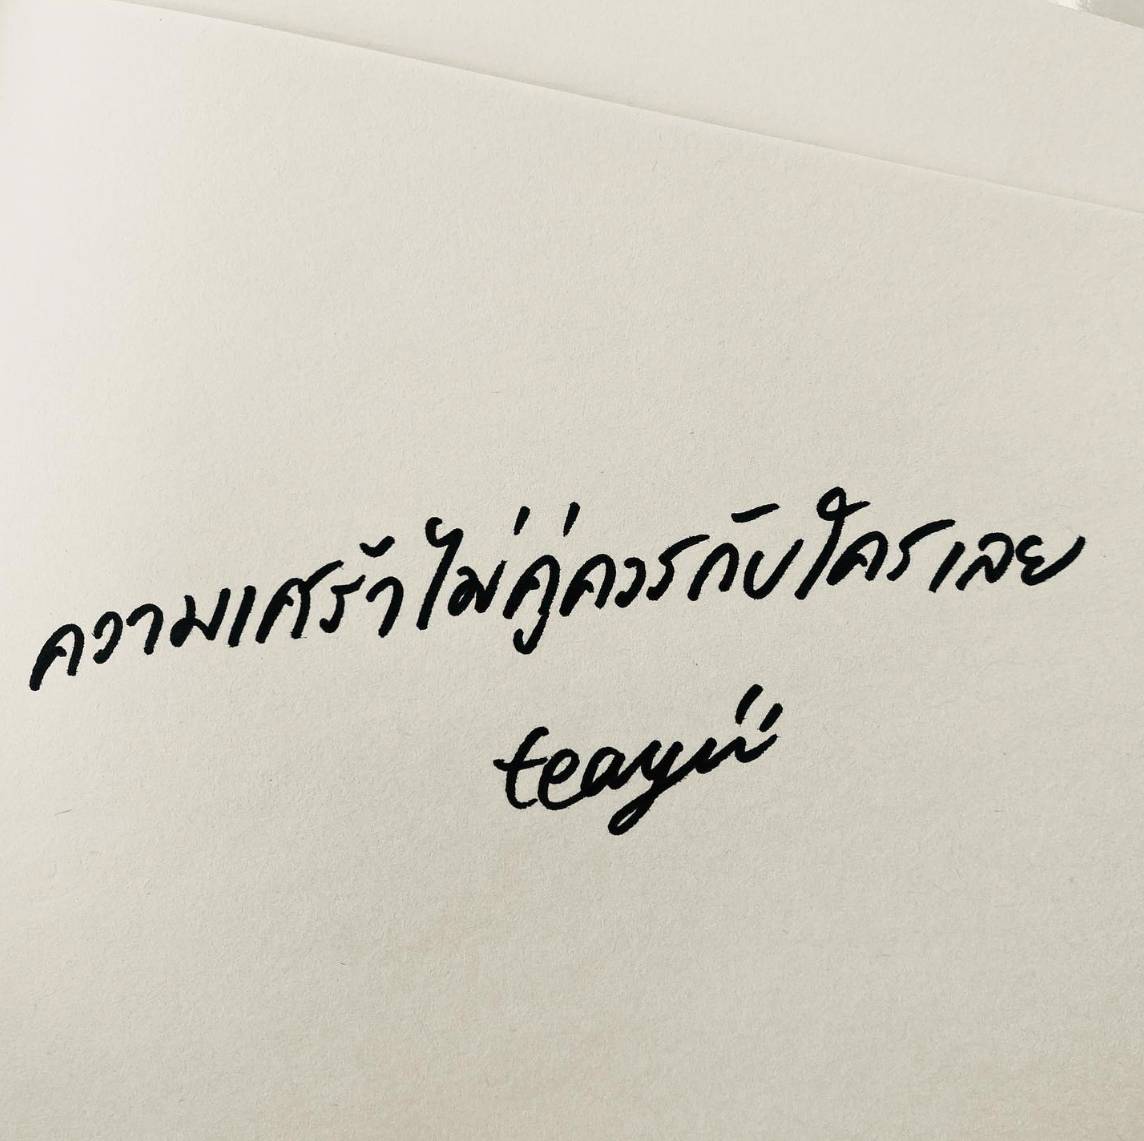 ความเศร้าไม่คู่ควรกับใครเลย
teayii